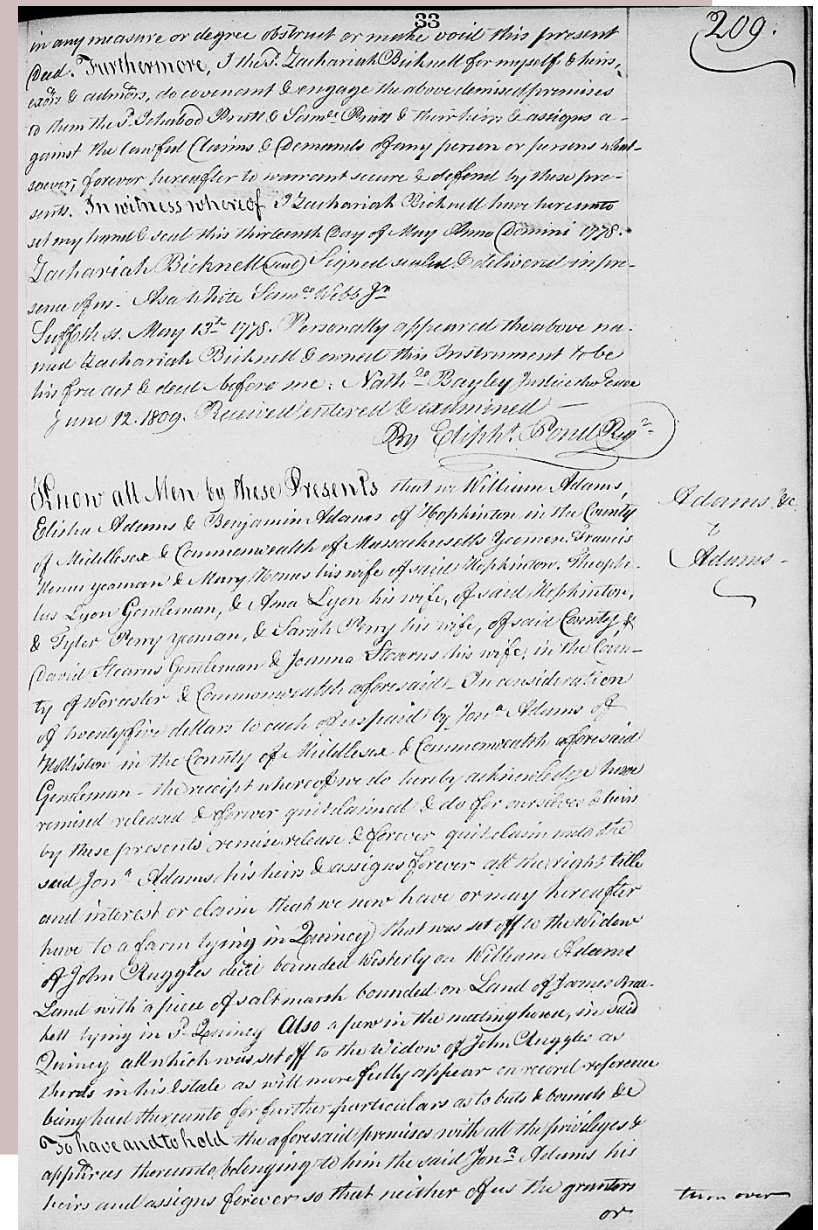 33
209.
in any measure or degree obstruct or make void this present
Deed. Furthermore, I the s.d Zachariah Bicknell for myself & heirs,
exõrs & admõrs, do covenant & engage the above demised premises
to them the s.d Ichabod Pratt & Sam.l Pratt & their heirs & assigns a-
gainst the lawful Claims & Demands of any person or persons what-
soever, forever hereafter to warrant secure & defend by these pre-
sents. In witness whereof I Zachariah Bicknell have hereunto
set my hand & seal this thirteenth Day of May Anno Domini 1778.
Zachariah Bicknell (seal) Signed sealed & delivered in pre-
sence of us. Asa White Sam.l Webb Jr
Suffolk ss. May 13th 1778. Personally appeared the above na-
med Zachariah Bicknell & owned this Instrument to be
his free act & deed before me: Nath.l Bayley Justice
June 12. 1809. Received entered & examined
By Eliph.t Pond Reg.r
Know all Men by these Presents that we William Adams,
Elisha Adams & Benjamin Adams of Hopkinton in the County
of Middlesex & Commonwealth of Massachusetts Yeomen. Francis
yeoman & Mary his wife of said Hopkinton. Theophi-
lus Lyon Gentleman, & Ama Lyon his wife, of said Hopkinton,
& Tyler Perry yeoman, & Sarah Perry his wife, of said County, &
David Stearns Gentleman & Joanna Stearns his wife, in the Coun-
ty of Worcester & Commonwealth aforesaid. In consideration
of twenty five dollars to each of us paid by Jon.a Adams of
Holliston in the County of Middlesex & Commonwealth aforesaid
Gentleman - the receipt whereof we do hereby acknowledge have
remised released & forever quitclaimed & do for ourselves & heirs
by these presents remise release & forever quitclaim unto the
said Jon.a Adams his heirs & assigns forever all the right title
and interest or claim that we now have or may hereafter
have to a farm lying in Quincy that was set off to the Widow
of John Ruggles dec.d bounded Westerly on William Adams
Land with a piece of salt marsh bounded on Land of James Brac-
kett lying in s.d Quincy Also a pew in the meeting house, in said
Quincy all which was set off to the Widow of John Ruggles as
thirds in his Estate as will more fully appear on record reference
being had thereunto for further particulars as to buts & bounds &c
To have and to hold the aforesaid premises with all the privileges &
app.ces thereunto belonging to him the said Jon.a Adams his
heirs and assigns forever so that neither of us the grantors
or
Adams &c
to
Adams
turn over